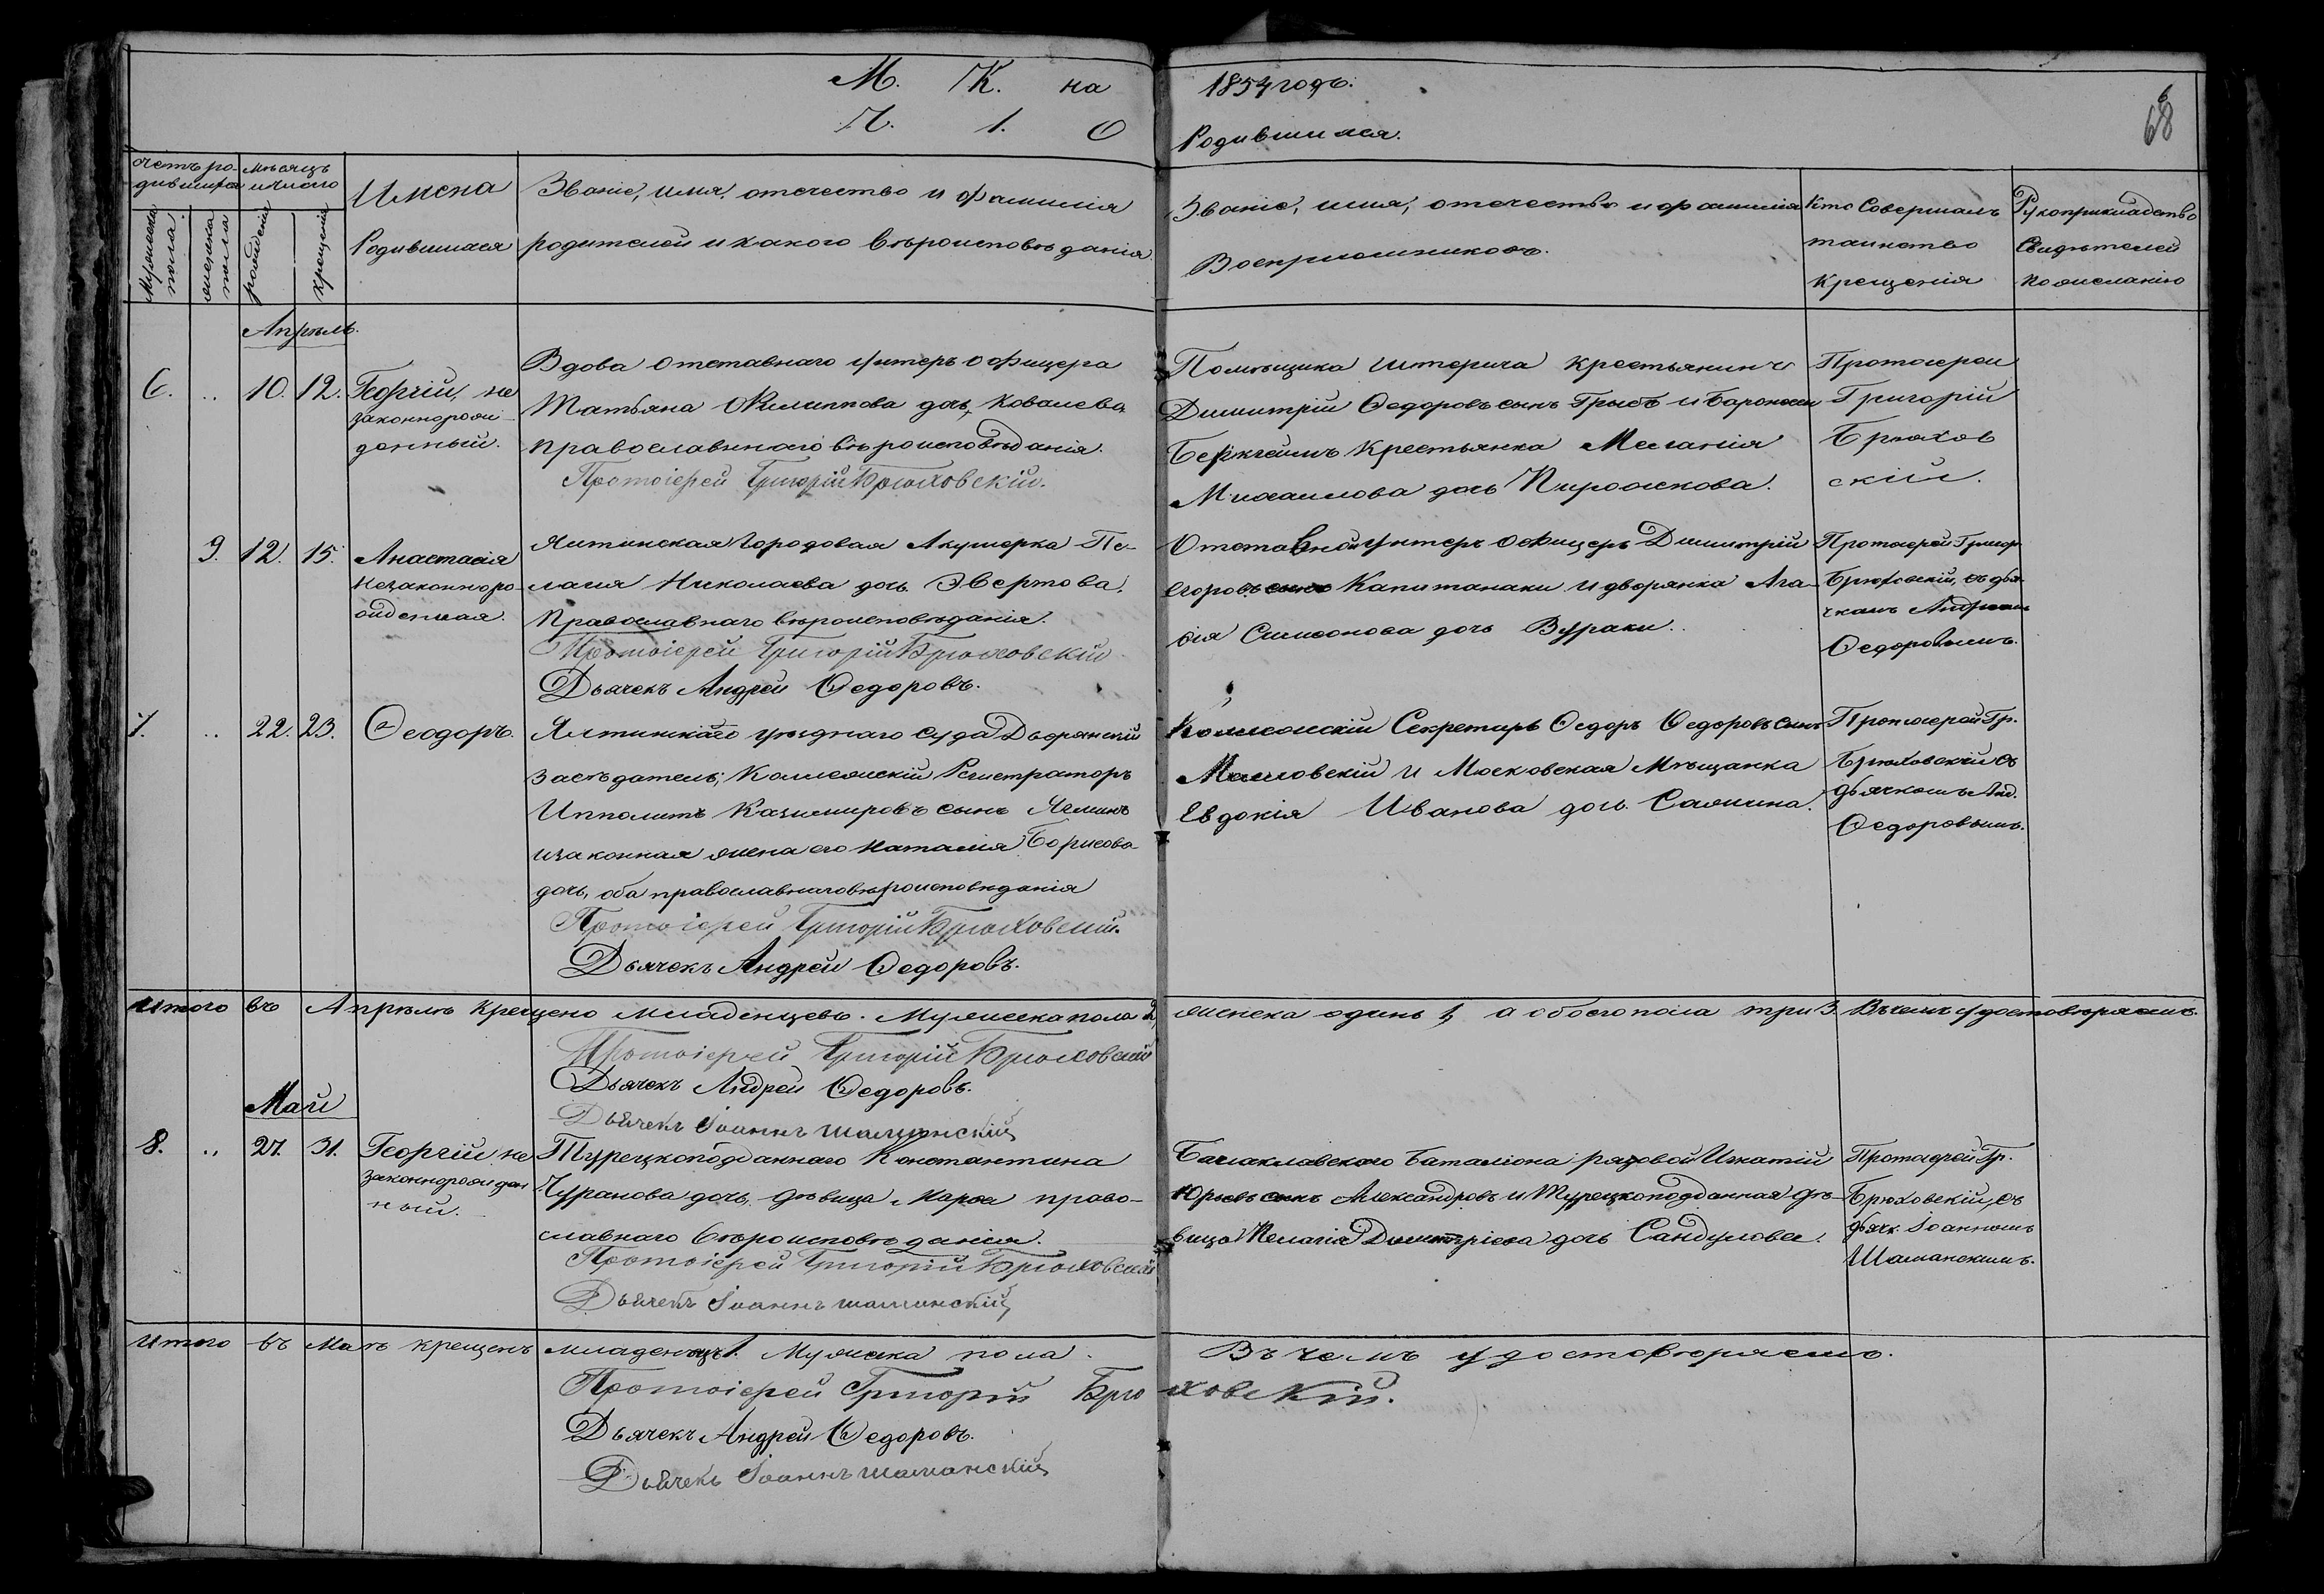 М. К. на 1854 годъ.
Ч. 1. О Родившихся.
6
68
Счетъ ро-
дившихся
Мѣсяцъ
и число
Имена
Родившихся
Званіе, имя, отчество и фамилія
родителей и какого вѣроисповѣданія.
Званіе, имя, отчество и фамилія
Воспріемниковъ.
Кто Совершалъ
таинство
Крещенія
Рукоприкладство
Свидѣтелей
по желанію
Мужеска
пола.
женска
пола
рожденія
крещенія
Апрѣль.
6. .. 10. 12. Георгій, не
законнорож
денный.
Вдова отставнаго унтеръ офицера
Татьяна Филиппова дочь, Ковалева
православннаго вѣроисповѣданія.
Протоіерей Григорій Брюховскій.
Помѣщика Штерича Крестьянинъ
Димитрій Ѳедоровъ сынъ Грыбъ и Баронессы
Беркгеймъ Крестьянка Меланія
Михаилова дочь Пирожкова.
Протоіерей
Григорій
Брюхов
скій.
9. 12. 15. Анастасія
Незаконноро
жденная.
Ялтинская Городовая Акушерка Пе-
лагія Николаева дочь Эвертова,
Православнаго вѣроисповѣданія.
Протоіерей Григорій Брюховскій
Дьячекъ Андрей Ѳедоровъ.
Отставной унтеръ офицеръ Димитрій
Егоровъ сынъ Капитанаки и дворянка Ага-
ѳія Симеонова дочь Вураки.
Протоіерей Григор.
Брюховскій, съ дья-
чкомъ Андреемъ
Ѳедоровымъ.
7. .. 22. 23. Ѳеодоръ.
Ялтинскаго уѣзднаго суда Дворянскій
засѣдатель, Коллежскій Регистраторъ
Ипполитъ Казимировъ сынъ
и законная жена его Наталія Борисова
дочь, оба православнаго вѣроисповѣданія
Протоіерей Григорій Брюховскій.
Дьячекъ Андрей Ѳедоровъ.
Коллежскій Секретарь Ѳедоръ Ѳедоровъ сынъ
и Московская Мѣщанка
Евдокія Иванова дочь
Протоіерей Гр.
Брюховскій съ
дьячкомъ Анд.
Ѳедоровымъ.
Итого въ Апрѣлѣ крещено младенцевъ. Мужеска пола 2, женска одинъ 1, а обоего пола три 3. Въ чемъ удостовѣряемъ.
Протоіерей Григорій Брюховскій
Дьячекъ Андрей Ѳедоровъ.
Дьячекъ Іоаннъ Шаманскій
Май
8. .. 27. 31. Георгій не
законнорожден
ный.
Турецкоподданнаго Константина
Чуранова дочь, дѣвица Марѳа право-
славнаго вѣроисповѣданія.
Протоіерей Григорій Брюховскій
Дьячекъ Іоаннъ Шаманскій
Балаклавскаго баталіона рядовой Игнатій
Юрьевъ сынъ Александровъ и Турецкоподданная дѣ-
вица Пелагія Димитріева дочь Сандулова.
Протоіерей Гр.
Брюховскій, съ
дьячк. Іоанномъ
Шаманскимъ.
Итого въ Маѣ крещенъ младенецъ 1. Мужеска пола. Въ чемъ удостовѣряемъ.
Протоіерей Григорій Брюховскій.
Дьячекъ Андрей Ѳедоровъ.
Дьячекъ Іоаннъ Шаманскій